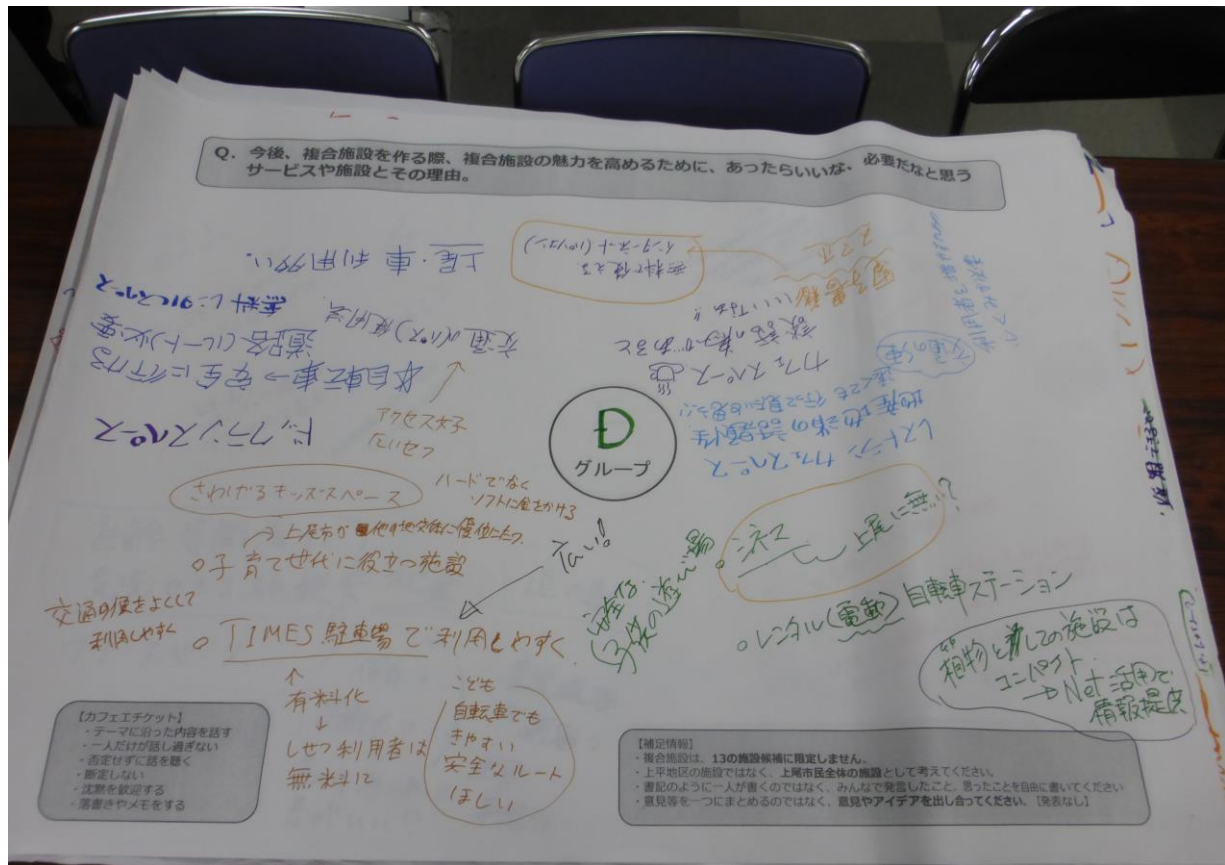 Q. 今後、複合施設を作る際、複合施設の魅力を高めるために、あったらいいな、必要だなと思う
サービスや施設とその理由。
上尾・車 利用多い
無料レンタルスペース
交通(バス)使用
※自転車→安全に行ける
道路(ルート)必要
ドッグランスペース
アクセス大子
たいせつ
無料で使える
インターネット(パソコン)
スマホ
電子書籍
いいなぁ!!
談話の場があると
カフェスペース
交通の便
レストラン カフェスペース
地産地消の話題性
遠くても行って見たいと思う!!
D
グループ
さわげるキッズスペース
ハードでなく
ソフトに金をかける
上尾市が他の地交体に優位にたつ
○子育て世代に役立つ施設
広い!
交通の便をよくして
利用しやすく
○TIMES駐車場で利用しやすく
↑
有料化
↓
しせつ利用者は
無料に
こども
自転車でも
きやすい
安全なルート
ほしい
安全な
子供の遊び場
上尾に無い?
○レンタル(電動)自転車ステーション
箱物としての施設は
コンパクト
→Net活用で
情報提供
【カフェエチケット】
・テーマに沿った内容を話す
・一人だけが話し過ぎない
・否定せずに話を聴く
・断定しない
・沈黙を歓迎する
・落書きやメモをする
【補足情報】
・複合施設は、13の施設候補に限定しません。
・上平地区の施設ではなく、上尾市民全体の施設として考えてください。
・書記のように一人が書くのではなく、みんなで発言したこと、思ったことを自由に書いてください
・意見等を一つにまとめるのではなく、意見やアイデアを出し合ってください。【発表なし】